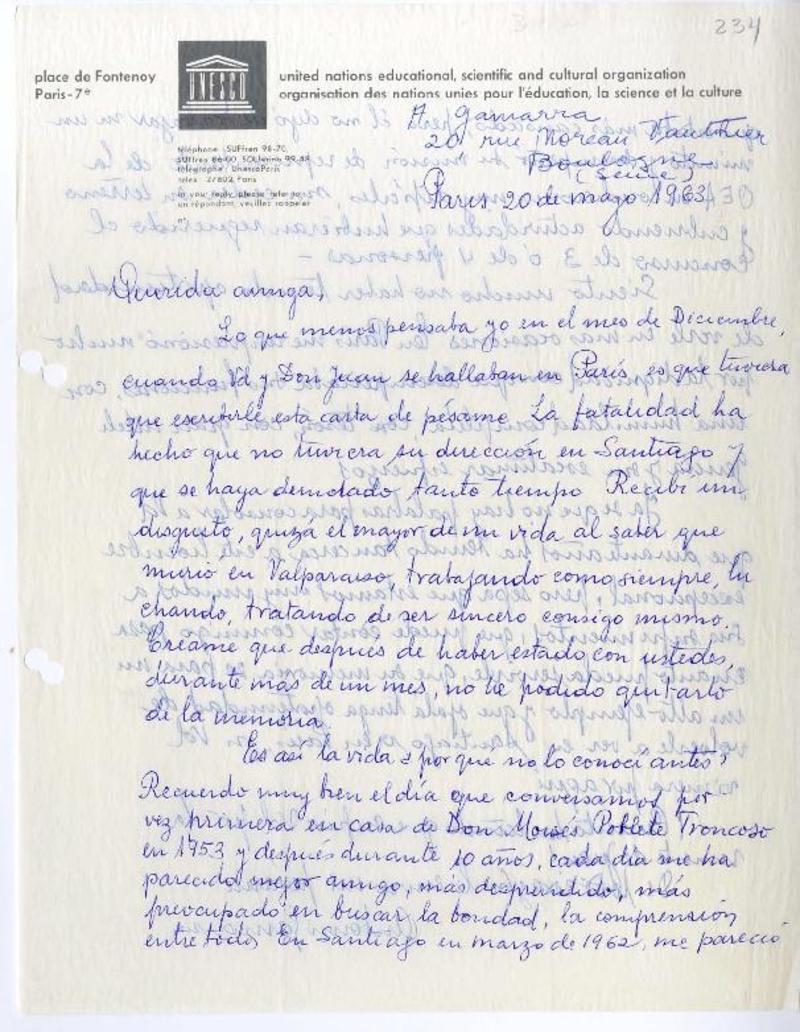 234
place de Fontenoy
Paris-7e
UNESCO
united nations educational, scientific and cultural organization
organisation des nations unies pour l'éducation, la science et la culture
téléphone : SUFfren 98-70
SUFfren 86-00
télégraphe : UnescoParis
télex : 27602 Paris
in your reply, please refer to :
en répondant, veuillez rappeler :
A Gamarra
20 rue Moreau Vauthier
Boulogne
(Seine)
Paris, 20 de mayo 1963
Querida amiga,
Lo que menos pensaba yo en el mes de Diciembre,
cuando Vd y Don Juan se hallaban en París, es que tuviera
que escribirle esta carta de pésame. La fatalidad ha
hecho que no tuviera su dirección en Santiago y
que se haya demorado tanto tiempo. Recibí un
disgusto, quizá el mayor de mi vida al saber que
murió en Valparaiso, trabajando como siempre, lu
chando, tratando de ser sincero consigo mismo.
Créame que después de haber estado con ustedes,
durante más de un mes, no he podido quitarlo
de la memoria
Es así la vida ¿ por que no lo conocí antes?
Recuerdo muy bien el día que conversamos por
vez primera en casa de Don Moisés Poblete Troncoso
en 1953 y después durante 10 años, cada día me ha
parecido mejor amigo, más desprendido, más
preocupado en buscar la bondad, la comprensión
entre todos. En Santiago en marzo de 1962, me pareció